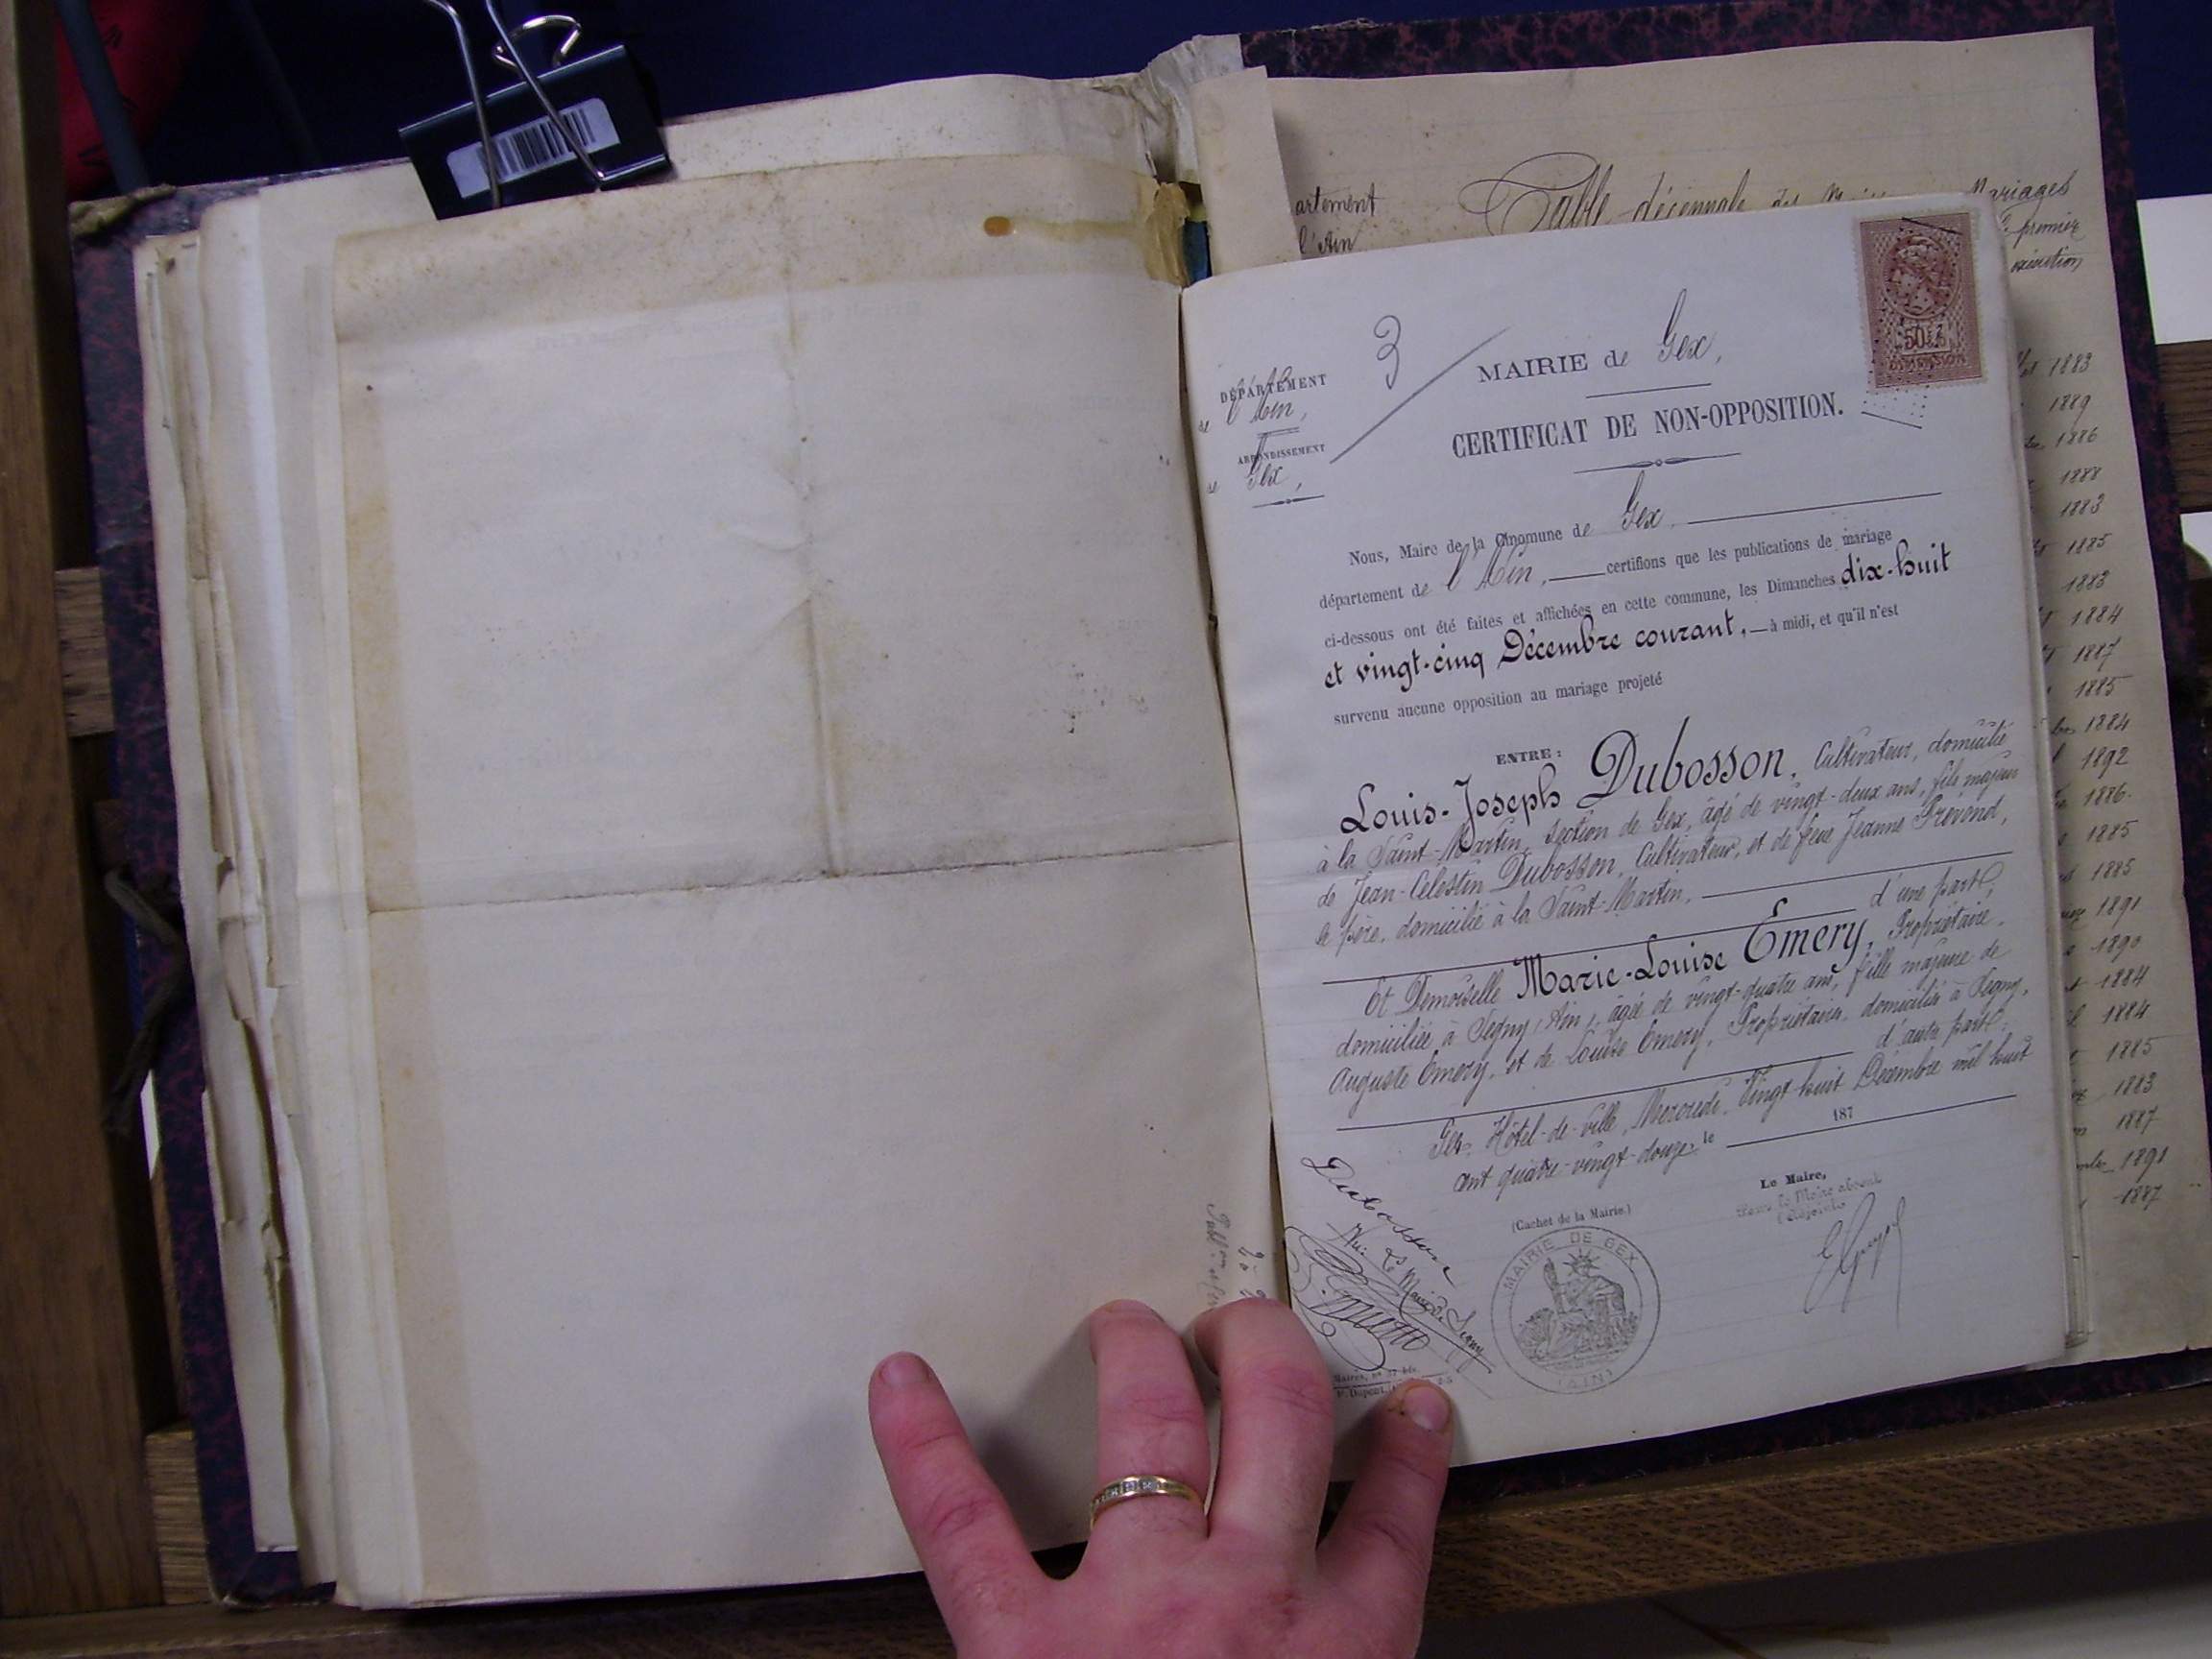 artement
l'Ain
Table décennale des Mariages
premier
exécution
1883
1889
1886
1888
1883
1885
1883
1884
1887
1885
1884
1892
1886
1885
1885
1891
1890
1884
1884
1885
1883
1887
1891
1887
3
DÉPARTEMENT
de l'Ain,
ARRONDISSEMENT
de Gex,
MAIRIE de Gex,
50
CERTIFICAT DE NON-OPPOSITION.
Nous, Maire de la Commune de Gex,
département de l'Ain, certifions que les publications de mariage
ci-dessous ont été faites et affichées en cette commune, les Dimanches dix-huit
et vingt-cinq Décembre courant, à midi, et qu'il n'est
survenu aucune opposition au mariage projeté
ENTRE :
Louis-Joseph Dubosson, Cultivateur, domicilié
à la Saint-Martin, section de Gex, âgé de vingt-deux ans, fils majeur
de Jean-Célestin Dubosson, Cultivateur, et de feue Jeanne Prévond,
le père, domicilié à la Saint-Martin,
d'une part,
Et Demoiselle Marie-Louise Emery, Propriétaire,
domiciliée à Segny (Ain), âgée de vingt-quatre ans, fille majeure de
Auguste Emery, et de Louise Emery, Propriétaires, domiciliés à Segny,
d'autre part.
Gex, Hôtel-de-Ville, Mercredi, Vingt-huit Décembre mil huit
cent quatre-vingt-douze. le 187
Le Maire,
Pour le Maire absent
l'Adjoint
(Cachet de la Mairie.)
MAIRIE DE GEX
(AIN)
Dubosson
Vu: Le Maire de Segny
Maires, n° 37 bis
P. Dupont